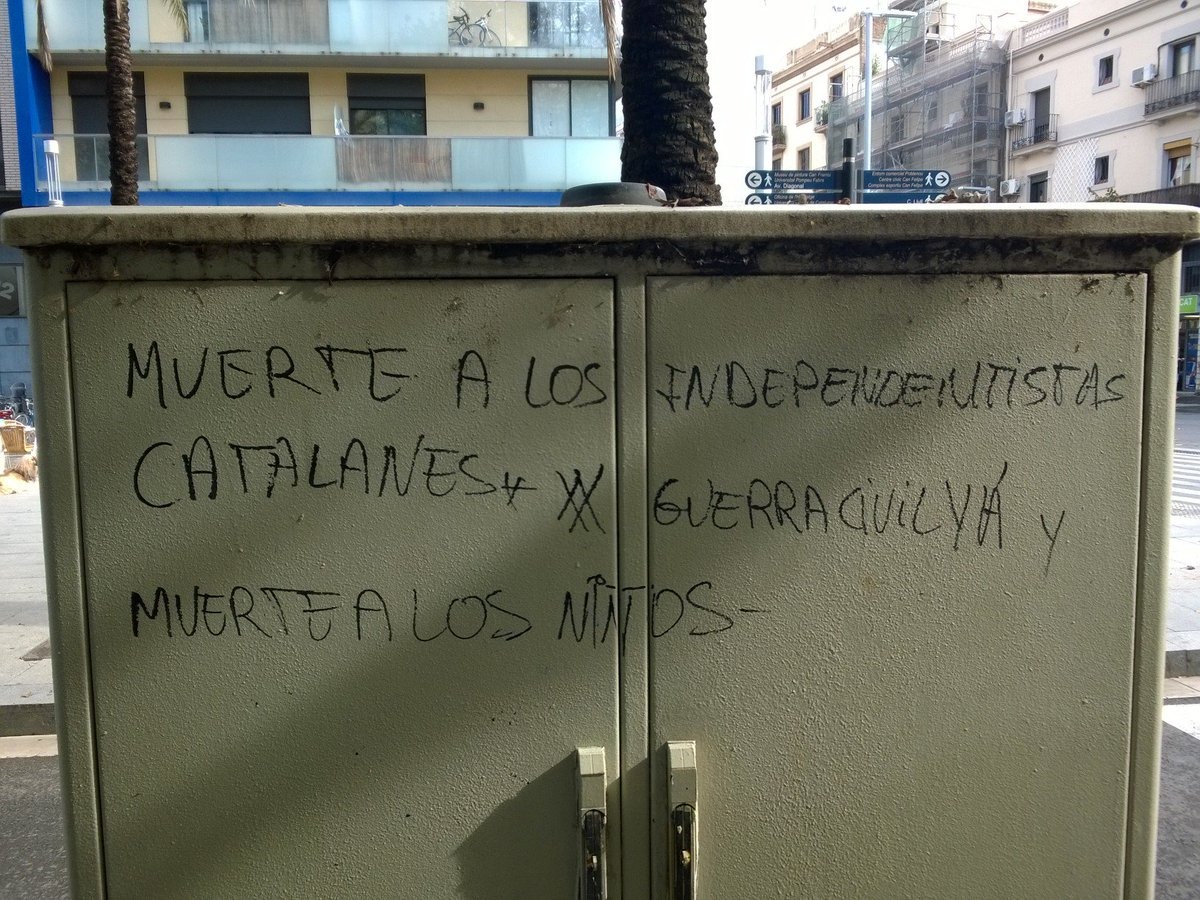 MUERTE A LOS INDEPENDENTISTAS
CATALANES** GUERRA CIVIL YÁ Y
MUERTE A LOS NIÑOS-
Museu de pintura Can Framis
Universitat Pompeu Fabra
Av. Diagonal
Entorn comercial Poblenou
Centre cívic Can Felipa
Complex esportiu Can Felipa